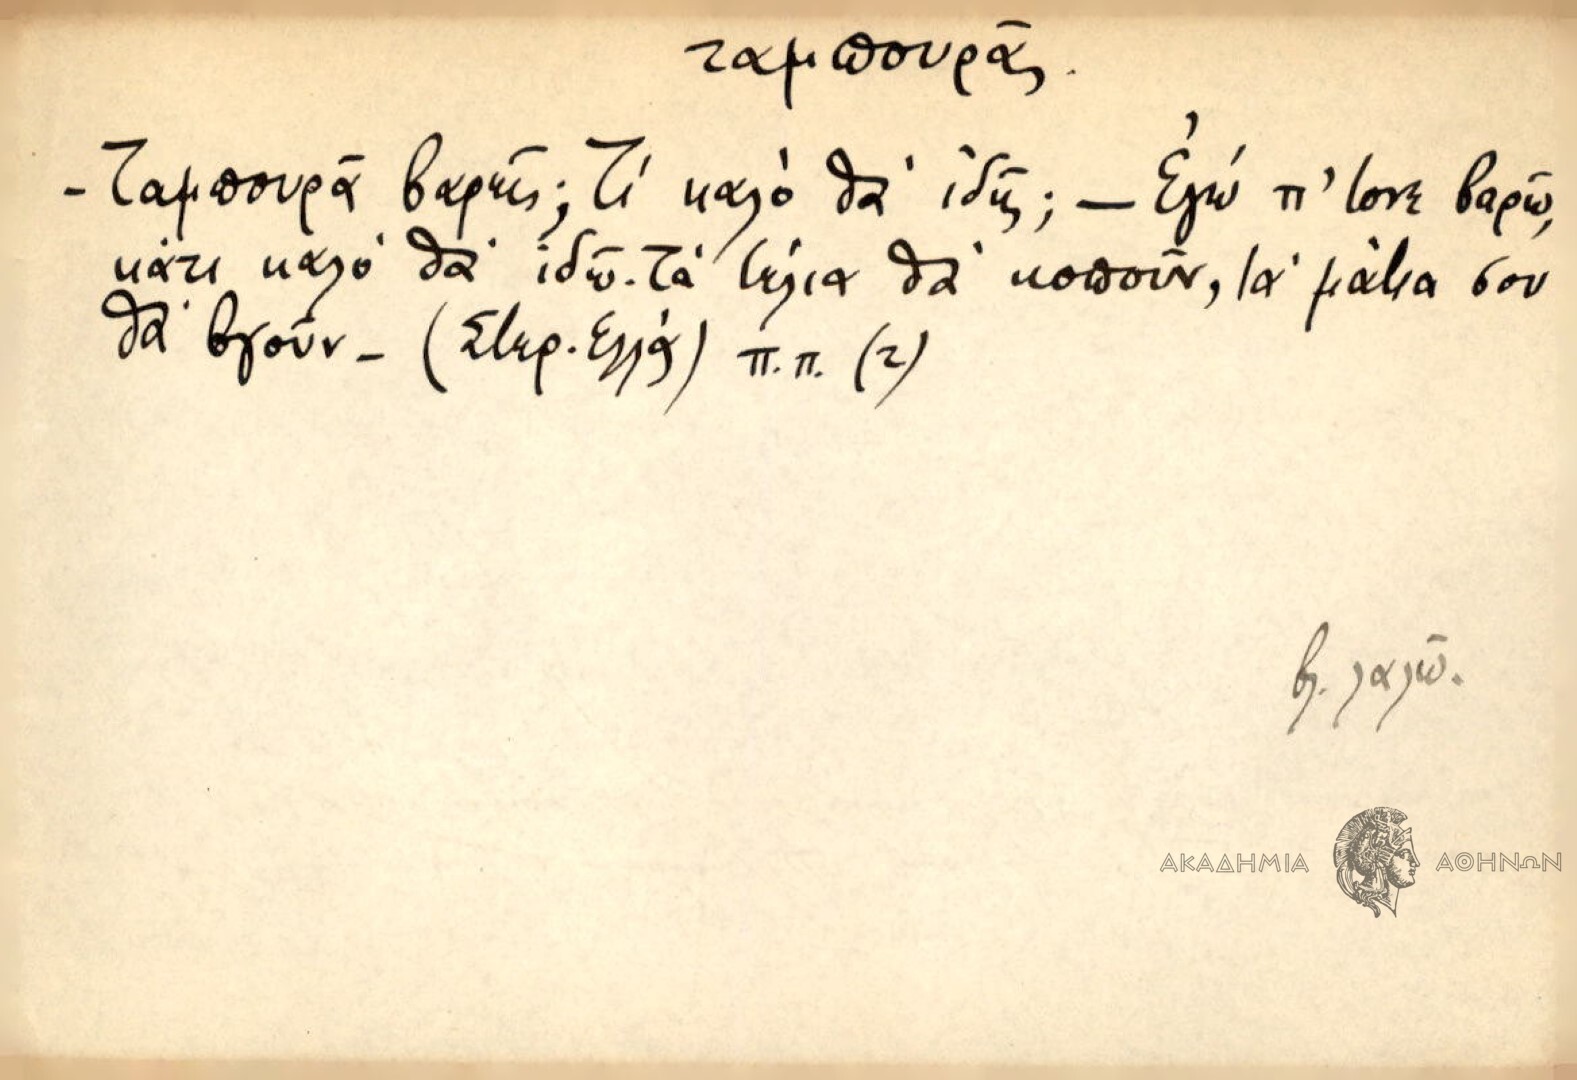 ταμπουρᾶς.
- Ταμπουρᾶ βαρεῖς; Τί καλὸ θὰ ἰδῇς; — Ἐγὼ π' τονε βαρῶ,
κάτι καλὸ θὰ ἰδῶ. Τὰ τέλια θὰ κοποῦν, τὰ μάτια σου
θὰ βγοῦν - (Στερ. Ἑλλάς) π.π. (τ)
βλ. λαλῶ.
ΑΚΑΔΗΜΙΑ ΑΘΗΝΩΝ